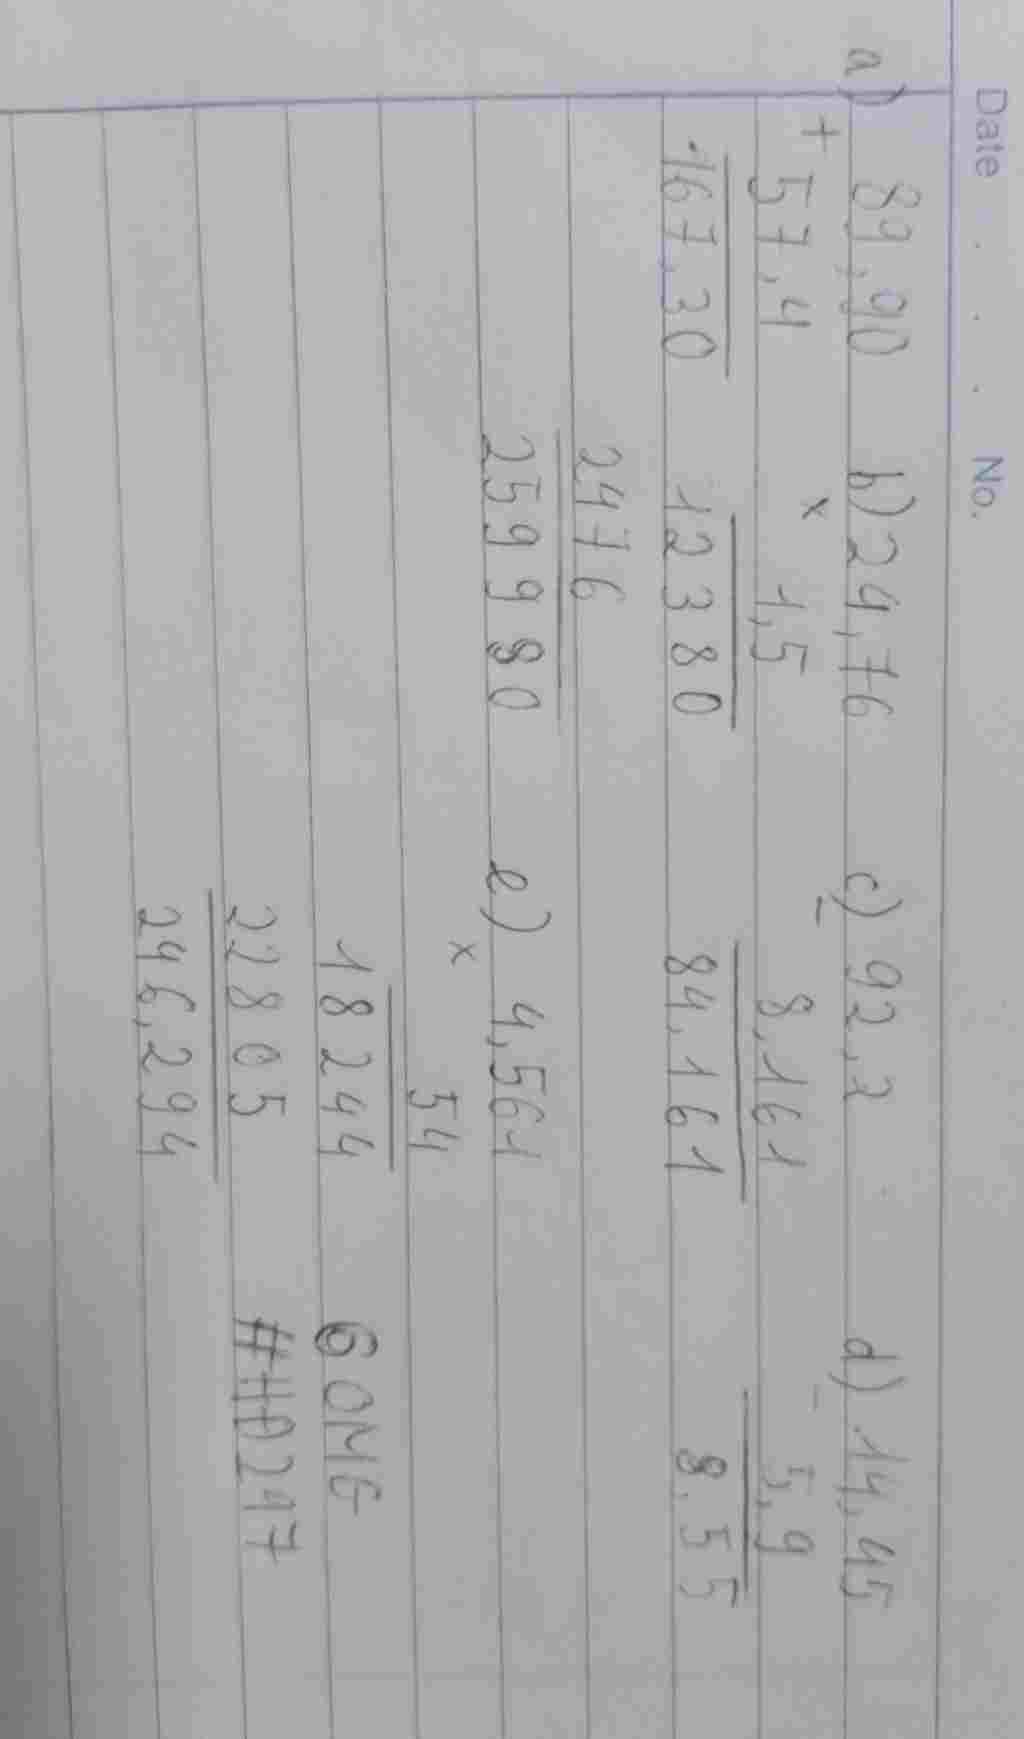 Date . . . No.
a) 89,90 b) 24,76 c) 92,2 d) 14,45
+ 57,4 x 1,5 - 8,161 - 5,9
167,30 12380 84,161 8.55
2476
259980 e) 4,561
x 54
18244 GOME
22805 #HD247
246,294